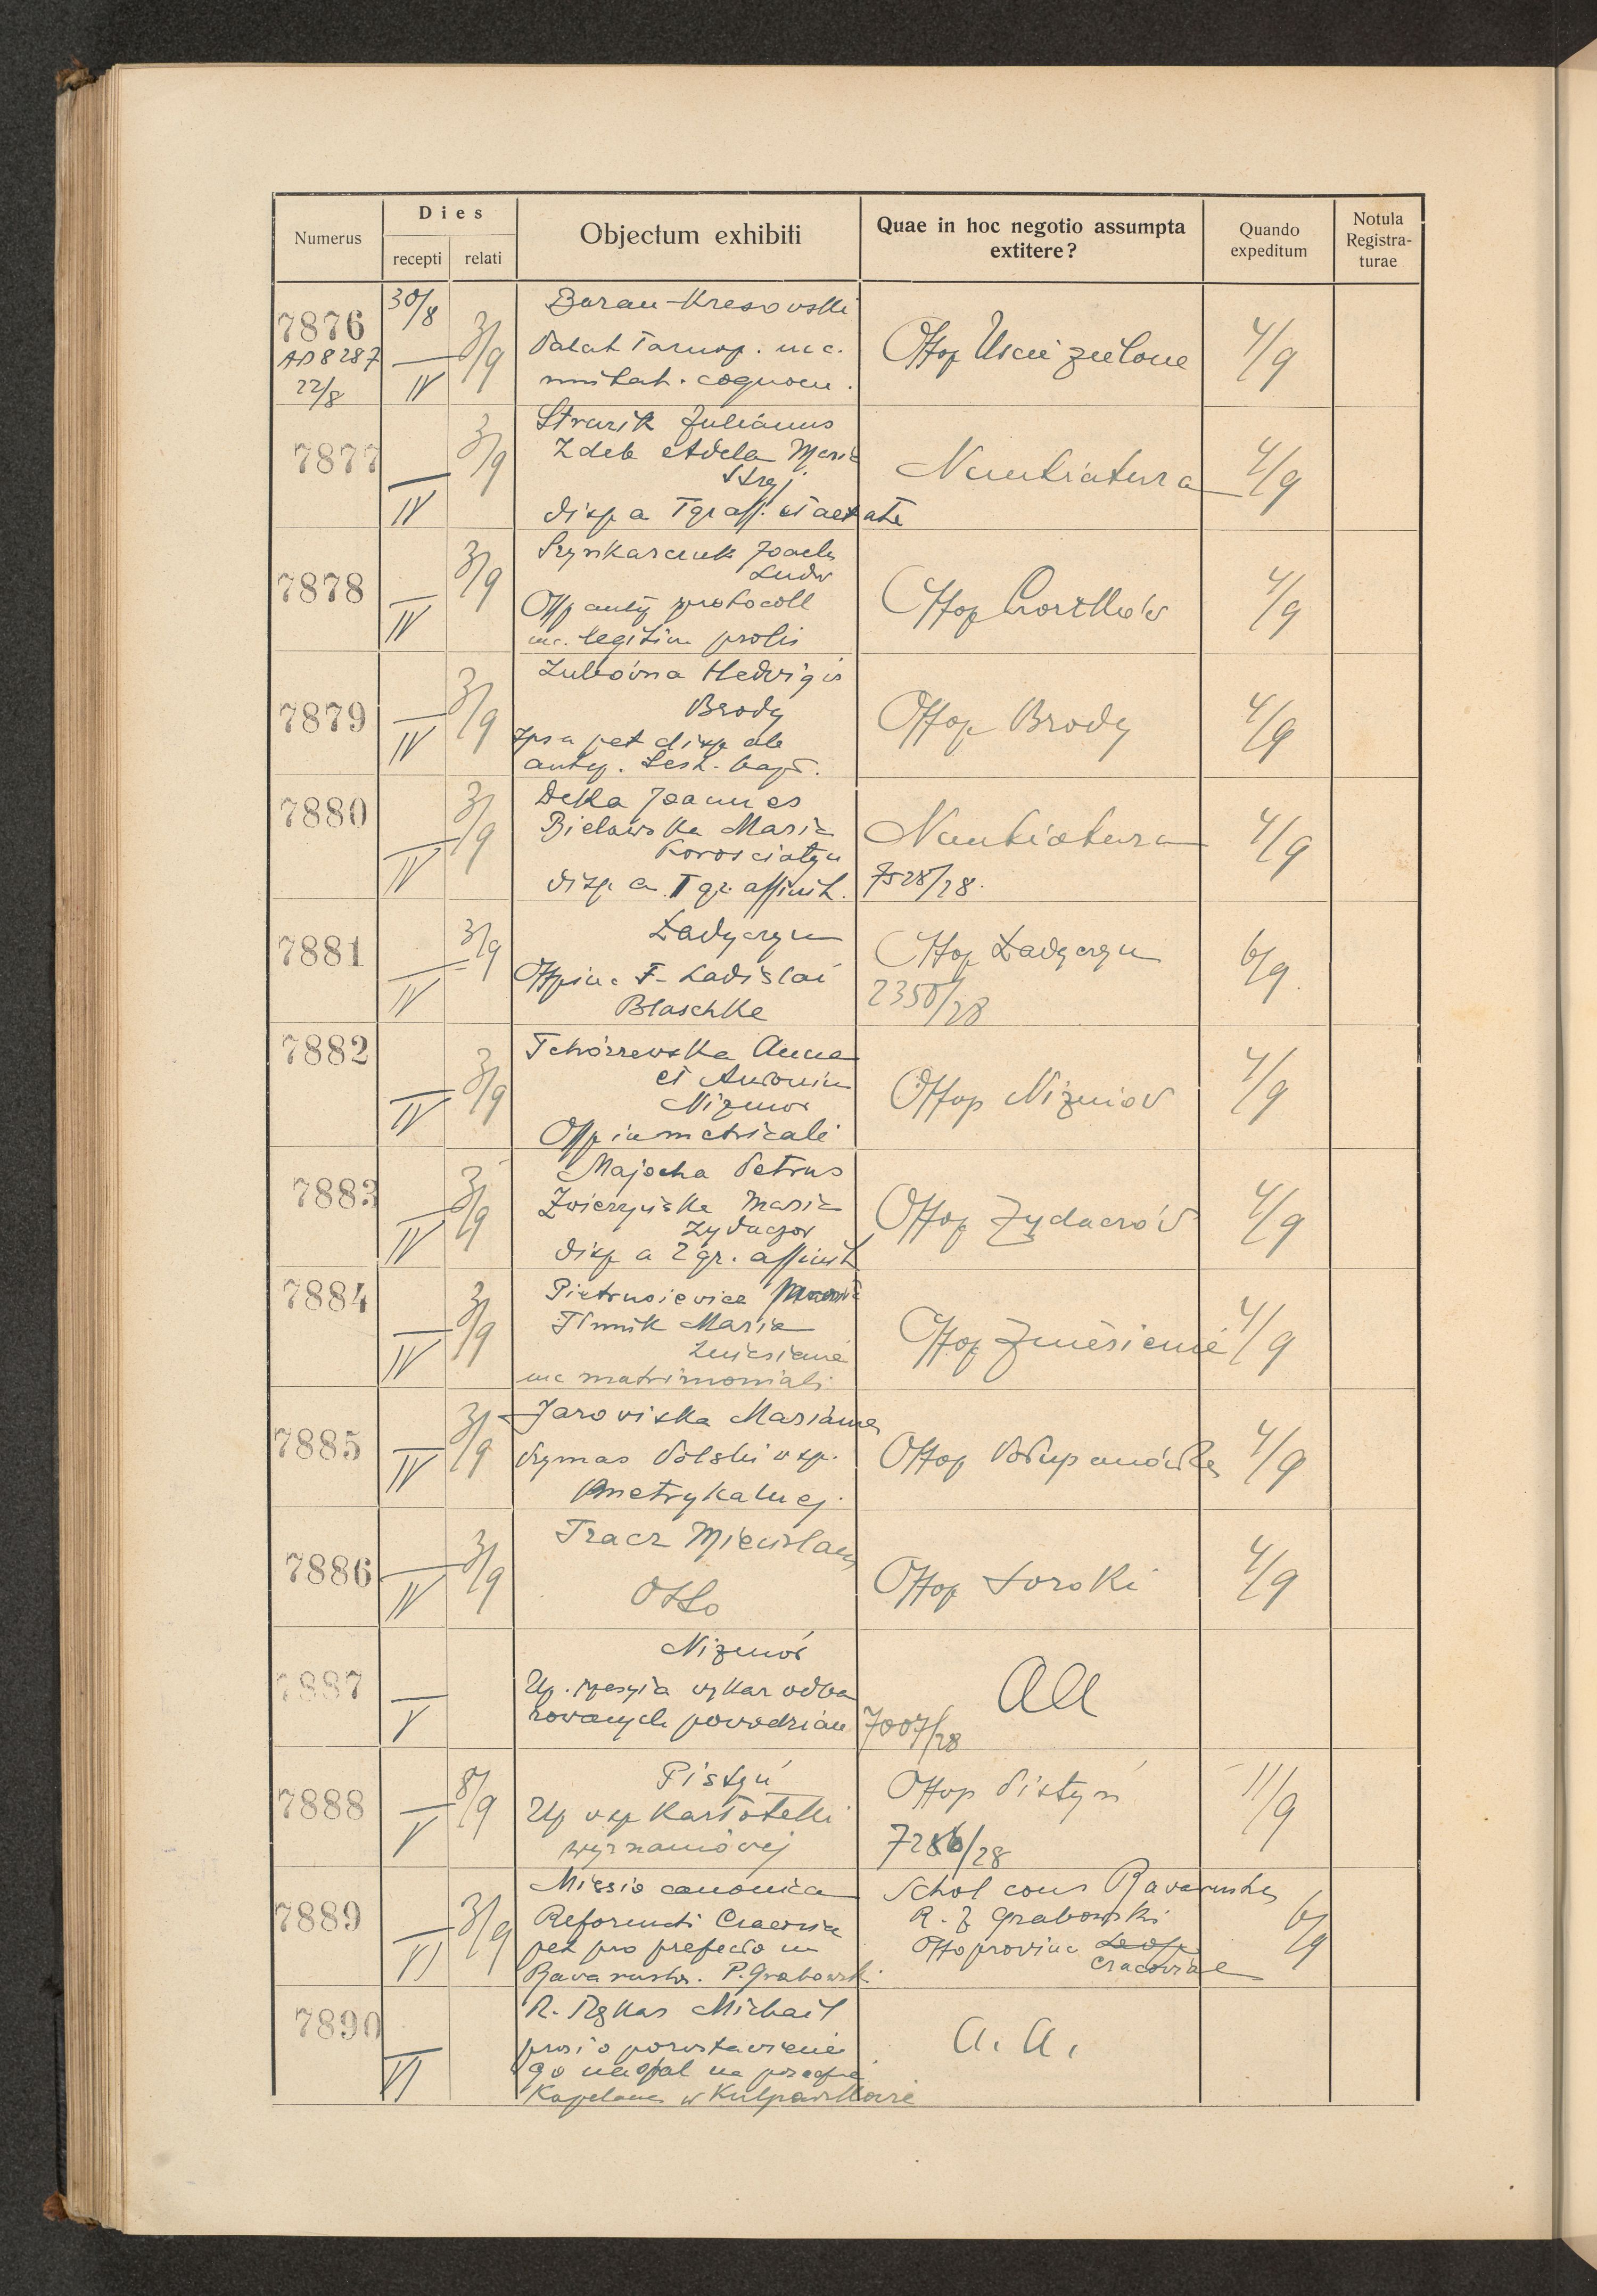 Numerus
Dies
recepti relati
Objectum exhibiti
Quae in hoc negotio assumpta
extitere?
Quando
expeditum
Notula
Registra-
turae
7876
AD 8287
22/8
30/8
IV
3/9
Baran-Kresovski
Palat Tarnop. inc.
mutat. cognom.
Offop Uście zielone
4/9
7877
IV
3/9
Julianus
Zdeb Adela Maria
Stryj
disp a I gr aff. et aetate
Nuntiatura
4/9
7878
IV
3/9
Szynkarczuk Joach
Ludw
Offp protocoll
inc. legitim prolis
Offop Czortków
4/9
7879
IV
3/9
Zubówna Hedvigis
Brody
Ipsa pet disp ab
bapt.
Offop Brody
4/9
7880
IV
3/9
Detka Joannes
Bielawska Maria
Korosciatyn
disp a I gr affinit.
Nuntiatura
7528/28.
4/9
7881
IV
3/9
Ładyczyn
Offp inc F. Ladislai
Blaschke
Offop Ładyczyn
2350/28
6/9.
7882
IV
3/9
Tchórzewska Anna
et Antonin
Nizniov
Offp in metricali
Offop Nizniov
4/9
7883
IV
3/9
Majocha Petrus
Zwierzyńska Maria
Zydaczov
disp a 2 gr. affinit
Offop Zydaczów
4/9
7884
IV
3/9
Pietrusievicz
Maria
Zniesienie
inc matrimoniali
Offop Zniesienie
4/9
7885
IV
3/9
Jaroviska Marianna
Rymas Polski w sp.
metrykalnej.
Offop
4/9
7886
IV
3/9
Tracz Miecislaus
Otto
Offop Toroki
4/9
7887
V
Nizniov
Up. przesyła wykaz odba
rowanych powodzian
7007/28
aa
7888
V
8/9
Pistyń
Up w sp Kartoteki
wyznaniowej
Offop Pistyń
7286/28
11/9
7889
VI
3/9
Missio canonica
Reformati Cracovia
pet pro prefecto in
Rava rusk. P. Grabowski
Schol cons Ravaruska
R. J Grabowski
Offo provinc Leop
Cracoviae
6/9
7890
VI
R. Michail
prosi o pozostawienie
go nadal na posadzie
Kapelana w Kulparkowie
a. a.